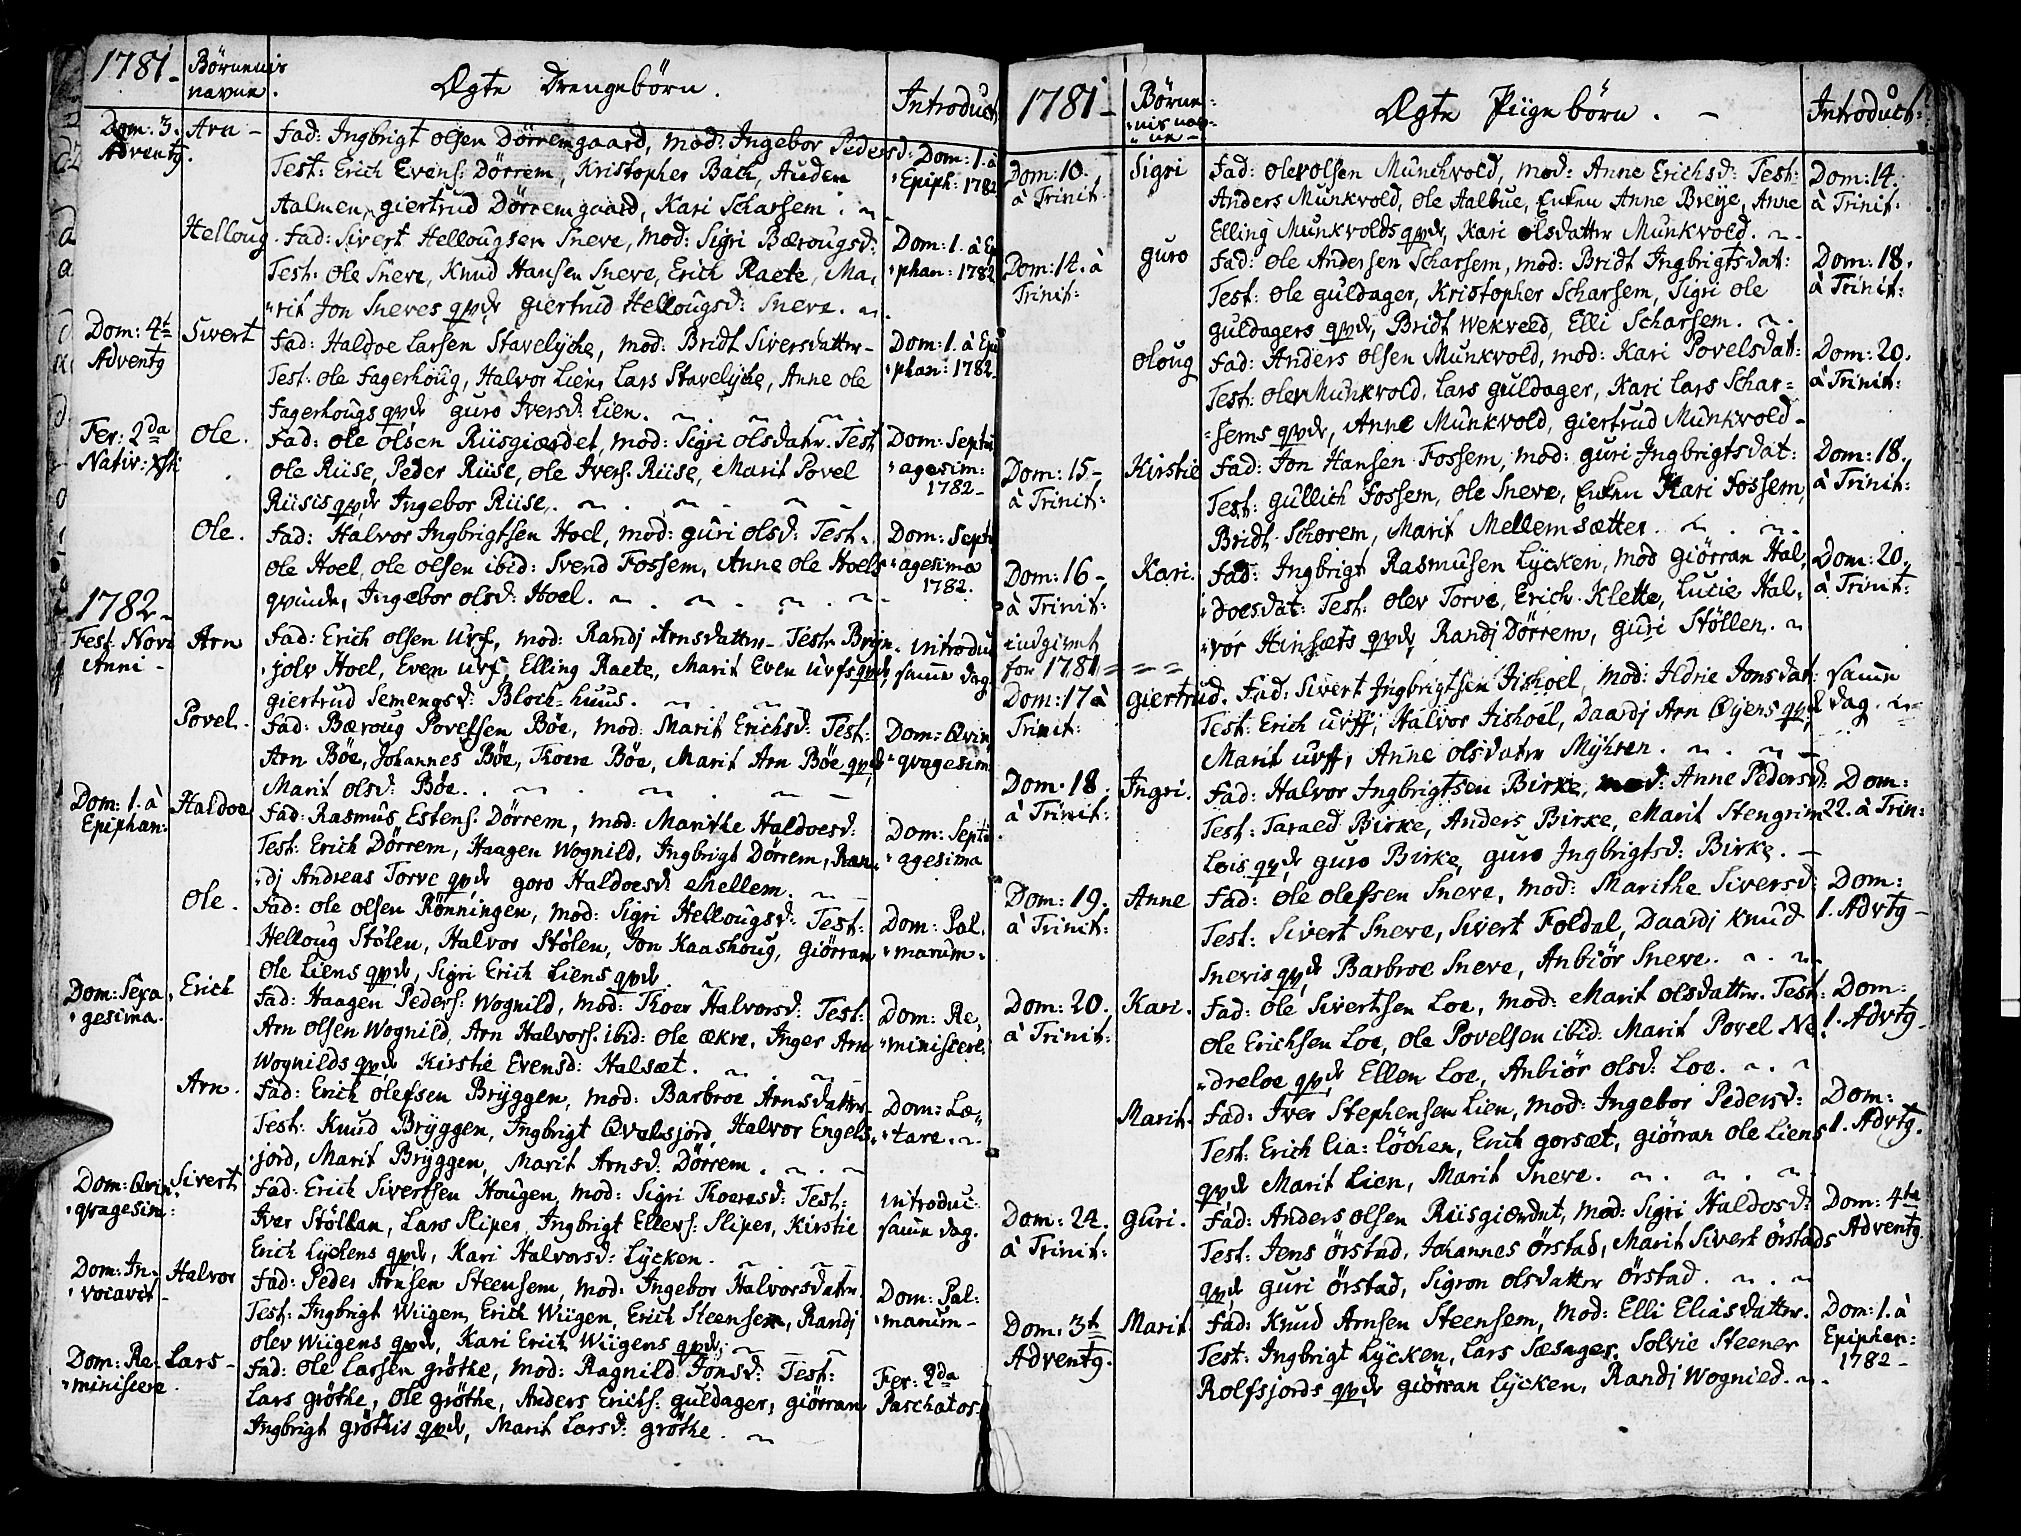 1781-
Børnenis
navne.
Ægte Drengebörn.
Introduct
Dom: 3.
Adventg.
Arn -
Fad: Ingbrigt olsen Dörremgaard, mod: Ingebor Pedersd:
Test: Erich Evens: Dörrem, Kristopher Bach, Auden
Aalmen, giertrud Dörremgaard, Kari Scharsem. ~
Dom: 1. à
Epiph: 1782
Helloug.
Fad: Sivert Hellougsen Sneve, mod: Sigri Bærougsd:
Test: Ole Sneve, Knud Hansen Sneve, Erich Raete, Ma,
"rit Jon Sneves qvde giertrud Hellougsd: Sneve. ~
Dom: 1. à Ep
"phan: 1782
Dom: 4t
Adventg
Sivert
Fad: Haldoe Larsen Stavelyche, mod: Bridt Siversdatter-
Test: Ole Fagerhoug, Halvor Lien, Lars Stavelyche, Anne Ole
Fagerhougs qvde guro Iversd: Lien. ~ . ~ . ~
Dom: 1. à Epi
"phan: 1782
Fer: 2da
Nativ: Xsti
Ole.
Fad: Ole Olsen Riisgiærdet, mod: Sigri olsdatr. Test
Ole Riise, Peder Riise, Ole Ivers: Riise, Marit Povel
Riisis qvde Ingebor Riise. ~ . ~ . ~
Dom: Septu
"agesim:
1782-
Ole.
Fad: Halvor Ingbrigtsen Hoel, mod: guri olsd: Test:
Ole Hoel, Ole olsen ibid: Svend Fossem, Anne Ole Hoels
qvinde, Ingebor olsd: Hoel. ~ . ~ . ~
Dom: Septu
"agesima
1782.
1782-
Fest: Novi
Anni -
Arn
Fad: Erich olsen Urf, mod: Randj Arnsdatter- Test: Bryn-
"jolv Hoel, Even Urf, Elling Raete, Marit Even Urfs qvde
giertrud Semengsd: Bloch-huus. ~ . ~
introdu
same dag
Povel.
Fad: Bæroug Povelsen Böe, mod: Marit Erichsd: Test:
Arn Böe, Johannes Böe, Thore Böe, Marit Arn Böe qvde
Marit olsd: Böe. . ~ . ~ . ~
Dom: Qvin
"qvagesim
Dom: 1. à
Epiphan:
Haldoe
Fad: Rasmus Estens: Dörrem, mod: Marithe Haldoesd:
Test: Erich Dörrem, Haagen Wognild, Ingbrigt Dörrem, Ran-
"dj Andreas Torve qvde goro Haldoesd: Mellem. ~
Dom: Septu
"agesima
Ole.
Fad: Ole olsen Rönningen, mod: Sigri Hellougsd: Test:
Helloug Stölen, Halvor Stölen, Jon Kaashoug, giörran
Ole Liens qvde, Sigri Erich Liens qvde
Dom: Pal.
"marum.
Dom: Sexa,
"gesima.
Erich
Fad: Haagen Peders: Wognild, mod: Thoer Halvorsd: Test:
Arn Olsen Wognild, Arn Halvors: ibid: Ole Ækre, Inger Arn
Wognilds qvde Kirstie Evensd: Halsæt. ~ . ~
Dom: Re,
"miniscere.
Arn.
Fad: Erich olefsen Bryggen, mod: Barbroe Arnsdatter-
Test: Knud Bryggen, Ingbrigt Qvalsjord, Halvor Engels,
"jord, Marit Bryggen, Marit Arnsd: Dörrem. ~ . ~
Dom: Læ,
"tare. ~
Dom: Qvin,
"qvagesim:
Sivert
Fad: Erich Sivertsen Hougen, mod: Sigri Thoeresd: Test:
Iver Stöllan, Lars Sliper, Ingbrigt Ellers: Sliper, Kirstie
Erich Lyckens qvde, Kari Halvorsd: Lycken. ~
introduc:
same dag.
Dom: In-
"vocavit-
Halvor
Fad: Peder Arnsen Steensem, mod: Ingebor Halvorsdatr.
Test: Ingbrigt Wiigen, Erich Wiigen, Erich Steensem, Randj
Olev Wiigens qvde, Kari Erich Wiigens qvde. ~
Dom: Pal:
"marum-
Dom: Re-
"miniscere.
Lars-
Fad: Ole Larsen gröthe, mod: Ragnild Jonsd: Test:
Lars gröthe, Ole gröthe, Anders Erichs: guldager, giörran
Ingbrigt gröthis qvde, Marit Larsd: gröthe. ~
Fer: 2da
Paschatos.
1781-
Børne:
"nis nav-
"ne-
Ægte Piigebörn. -
Introduct:
Dom: 10.
à Trinit.
Sigri
Fad: Olev olsen Munchvold, mod: Anne Erichsd: Test:
Anders Munkvold, Ole Aalbue, Enken Anne Breye, Anne
Elling Munkvolds qvde, Kari olsdatter Munkvold. ~
Dom: 14.
à Trinit:
Dom: 14. à
Trinit:
guro
Fad: Ole Andersen Scharsem, mod: Bridt Ingbrigtsdat:
Test: Ole guldager, Kristopher Scharsem, Sigri Ole
guldagers qvde, Bridt Wekveld, Elli Scharsem. ~ .
Dom: 18.
à Trinit:
oloug
Fad: Anders olsen Munkvold, mod: Kari Povelsdat:
Test: Olev Munkvold, Lars guldager, Kari Lars Schar-
"sems qvde, Anne Munkvold, giertrud Munkvold-
Dom: 20.
à Trinit:
Dom: 15-
à Trinit:
Kirstie
Fad: Jon Hansen Fossem, mod: guri Ingbrigtsdat:
Test: gullich Fossem, Ole Sneve, Enken Kari Fossem,
Bridt Schorem, Marit Mellemsætter. ~ . ~ .
Dom: 18.
à Trinit:
Dom: 16-
à Trinit:
Kari.
Fad: Ingbrigt Rasmusen Lycken, mod giörran Hal,
"doesdat: Test: Olev Torve, Erich Klette, Lucie Hal,
"vor Hinsæts qvde, Randj Dörrem, guri Stöllen. ~
Dom: 20.
à Trinit:
indgivet
for 1781
Dom: 17 à
Trinit:
giertrud.
Fad: Sivert Ingbrigtsen Iishoel, mod: Ildrie Jonsdat:
Test: Erich urff, Halvor Iishoel, Daardj Arn Øyens qvde
Marit urff, Anne olsdater Myhren. ~ . ~
same
dag. ~
Dom. 18
à Trinit:
Ingri.
Fad: Halvor Ingbrigtsen Birke, mod: Anne Pedersd:
Test: Tarald Birke, Anders Birke, Marit Stengrim
Lois qvde guro Birke, guro Ingbrigtsd: Birke. -
Dom:
22. à Trin:
Dom: 19.
à Trinit:
Anne
Fad: Ole olefsen Sneve, mod: Marithe Siversd:
Test: Sivert Sneve, Sivert Foldal, Daardj Knud
Snevis qvde Barbroe Sneve, Anbiör Sneve. ~ . ~
Dom:
1. Advtg-
Dom: 20.
à Trinit:
Kari.
Fad: Ole Sivertsen Loe, mod: Marit olsdatter. Test:
Ole Erichsen Loe, Ole Povelsen ibid: Marit Povel Ne,
"dreloe qvde Ellen Loe, Anbiör olsd: Loe. ~ . ~
Dom:
1. Advtg-
Marit.
Fad: Iver Stephensen Lien, mod: Ingebor Pedersd:
Test: Erich Lia: löchen, Erich gorsæt, giörran Ole Liens
qvde Marit Lien, Marit Sneve. ~ . ~ . ~
Dom:
1. Advtg.
Dom: 24.
à Trinit:
guri.
Fad: Anders olsen Riisgiærdet, mod: Sigri Haldosd:
Test: Jens örstad, Johannes örstad, Marit Sivert örstads
qvde guri örstad, Sigron olsdatter örstad. ~ . ~
Dom: 4ta
Adventg
Dom: 3t
Adventg.
Marit
Fad: Knud Arnsen Steensem, mod: Elli Eliasdatter.
Test: Ingbrigt Lycken, Lars Sæsager, Solvie Steener
Rolfsjords qvde giörran Lycken, Randj Wognild. ~ .
Dom: 1. à
Epiphan:
1782-